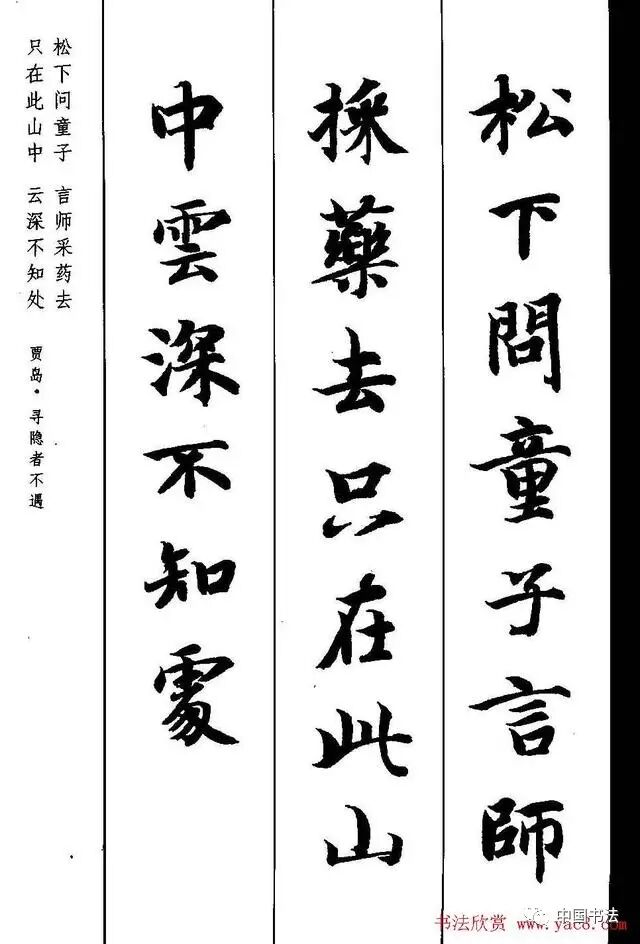 松下問童子言師
採藥去只在此山
中雲深不知處
松下问童子 言师采药去
只在此山中 云深不知处 贾岛·寻隐者不遇
中国书法
书法欣赏 www.yac8.com